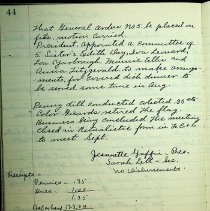 44
That General Order No 5 be placed on
file. motion carried.
President appointed a committee of
5 Sister's Edith Day, Eva Leonard,
Minnie Tellis and
Anna Fitzgerald to make arrange-
ments for Covered dish dinner to
be served some time in Aug.
Penny drill conducted colected 35 cts
Color Guards retired the Flag
Business being concluded the meeting
closed in Ritualistic form in F.C. & L
to meet Sept.
Jeannette Pres.
Sarah Sec.
No Disbursments
Receipts
Pennies - .35
Dues - 1.00